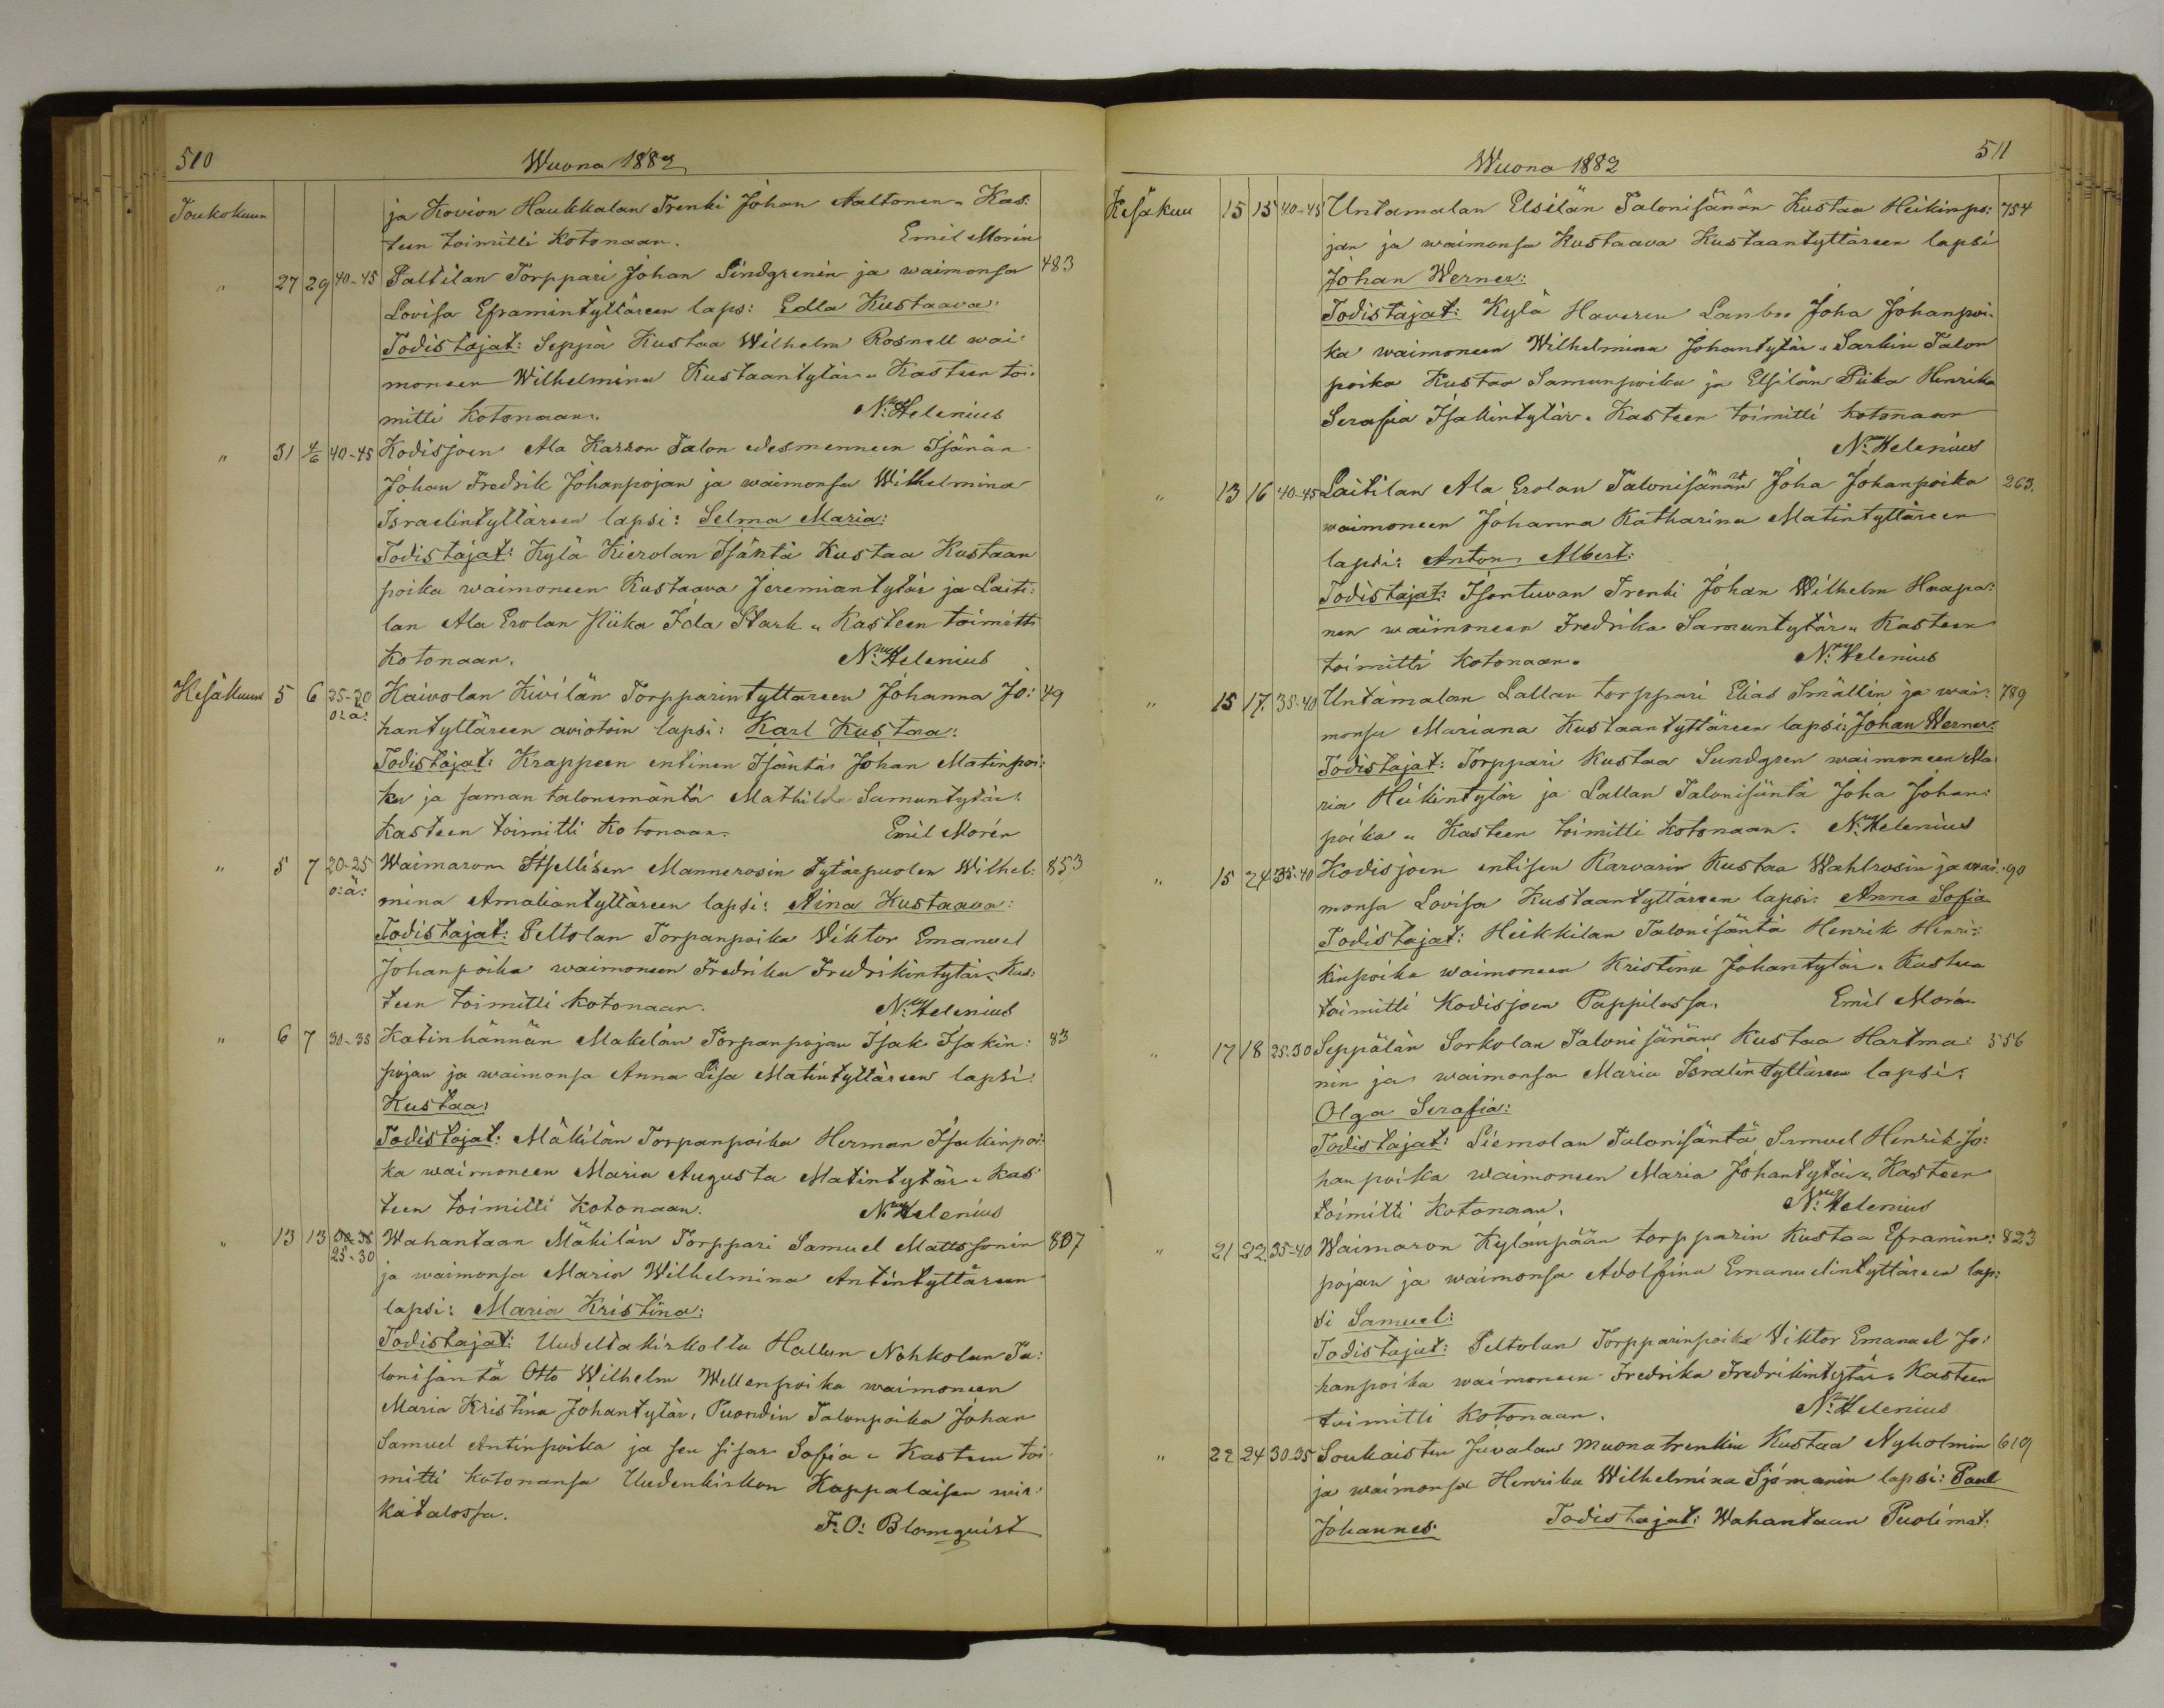 510
Wuona 1882
Toukokuun ja Kovion Haukkalan Trenki Johan Aaltonen „ Kas:
teen toimitti kotonaan. Emil Morén
" 27 29 40-45 Paltilan Torppari Johan Lindgrenin ja waimonsa 483
Lovisa Eframintyttäreen laps: Edla Kustaava:
Todistajat: Seppä Kustaa Wilhelm Rosnell wai:
moneen Wilhelmina Kustaantytär „ Kasteen toi:
mitti kotonaan. N: Helenius
" 31 4/6 40-45 Kodisjoen Ala Karron Talon edesmenneen Isänän
Johan Fredrik Johanpojan ja waimonsa Wilhelmina
Israelintyttäreen lapsi: Selma Maria:
Todistajat: Kylä Kierolan Isäntä Kustaa Kustaan
poika waimoneen Kustaava Jeremiantytär ja Laiti:
lan Ala Erolan Piika Ida Stark „ Kasteen toimitti
kotonaan. N: Helenius
Kesäkuun 5 6 25-30 Kaivolan Kivilän Torpparintyttareen Johanna Jo: 49
o: ä: hantyttäreen aviotoin lapsi: Karl Kustaa:
Todistajat: Krappeen entinen Isäntä Johan Matinpoi:
ka ja saman talonemäntä Mathilda Samuntytär:
Kasteen toimitti Kotonaan. Emil Morén
" 5 7 20-25 Waimaron Itsellisen Mannerosin tytärpuolen Wilhel: 853
o: ä: mina Amaliantyttäreen lapsi: Aina Kustaava:
Todistajat: Peltolan Torpanpoika Viktor Emanuel
Johanpoika waimoneen Fredrika Fredrikintytär „ Kas:
teen toimitti kotonaan. N: Helenius
" 6 7 30-35 Katinhännän Makelän Torpanpojan Isak Isakin: 83
pojan ja waimonsa Anna Lisa Matintyttäreen lapsi:
Kustaa:
Todistajat: Mäkilän Torpanpoika Herman Isakinpoi:
ka waimoneen Maria Augusta Matintytär „ Kas:
teen toimitti kotonaan. N: Helenius
" 13 13 30-35 Wahantaan Mäkilän Torppari Samuel Mattssonin 807
25-30 ja waimonsa Maria Wilhelmina Antintyttäreen
lapsi: Maria Kristina:
Todistajat: Uudeltakirkolta Hallun Nohkolan Ta:
lonisäntä Otto Wilhelm Willenpoika waimoneen
Maria Kristina Johantytär, Puondin Talonpoika Johan
Samuel Antinpoika ja sen sisar Sofia „ Kasteen toi
mitti kotonansa Uudenkirkon Kappalaisen wir:
katalossa. F: O: Blomquist
511
Wuona 1882
Kesäkuu 15 15 40-45 Untamalan Elsilän Talonisänän Kustaa Heikinpo: 754
jan ja waimonsa Kustaava Kustaantyttäreen lapsi
Johan Werner:
Todistajat: Kylä Joha Johanpoi-
ka waimoneen Wilhelmina Johantytär „ Sarkin Talon
poika Kustaa Samunpoika ja Elsilän Piika Henrika
Serafia Isakintytär „ Kasteen toimitti kotonaan
N: Helenius
" 13 16 40-45 Laitilan Ala Erolan Talonisänän Joha Johanpoika 263.
waimoneen Johanna Katharina Matintyttäreen
lapsi: Anton Albert:
Todistajat: Isontuvan Trenki Johan Wilhelm Haapa:
nen waimoneen Fredrika Samuntytär „ Kasteen
toimitti kotonaan. N: Helenius
" 15 17. 35-40 Untamalan Lallan torppari Elias Smällin ja wai: 789
monsa Mariana Kustaantyttäreen lapsi: Johan Werner:
Todistajat: Torppari Kustaa Sundgren waimoneen Ma
ria Heikintytär ja Lallan Talonisäntä Joha Johan:
poika „ Kasteen toimitti kotonaan. N: Helenius
" 15 24 35-40 Kodisjoen entisen Karvarin Kustaa Wahlrosin ja wai: 90
monsa Lovisa Kustaantyttäreen lapsi: Anna Sofia
Todistajat: Heikkilan Talonisäntä Henrik Henri:
kinpoika waimoneen Kristina Johantytär „ Kasteen
toimitti Kodisjoen Pappilassa. Emil Morén
" 17 18 25-30 Seppälän Sorkolan Talonisänän Kustaa Hartma: 556
nin ja waimonsa Maria Isralintyttäreen lapsi:
Olga Serafia:
Todistajat: Siemolan Talonisäntä Samuel Henrik Jo:
hanpoika waimoneen Maria Johantytär „ Kasteen
toimitti kotonaan. N: Helenius
" 21 22 35-40 Waimaron Kylänpään torpparin Kustaa Eframin: 823
pojan ja waimonsa Adolfina Emanuelintyttäreen lap:
si Samuel:
Todistajat: Peltolan Torpparinpoika Viktor Emanuel Jo:
hanpoika waimoneen Fredrika Fredrikintytär „ Kasteen
toimitti kotonaan. N: Helenius
" 22 24 30-35 Soukaisten Juvalan Muonatrenkin Kustaa Nyholmin 619
ja waimonsa Henrika Wilhelmina Sjömanin lapsi: Paul
Johannes. Todistajat: Wahantaan Puolimat: